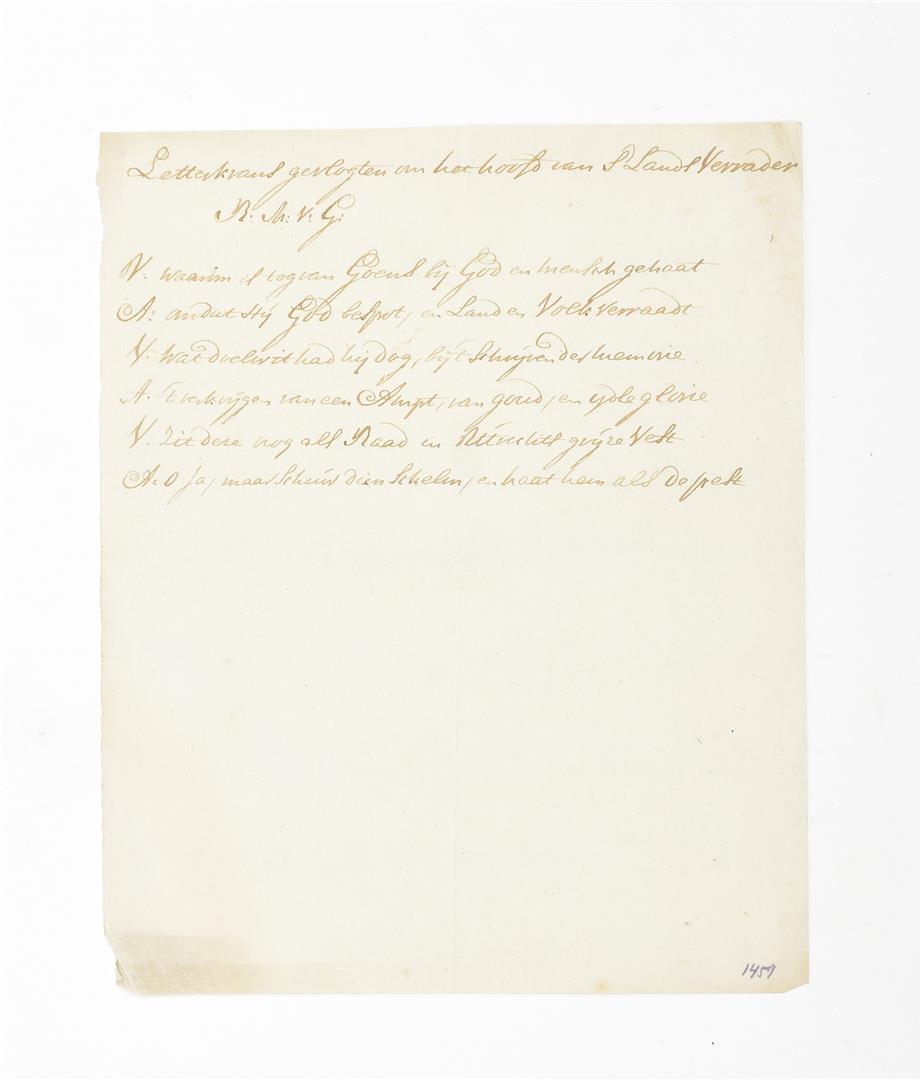 Letterkrans gevlogten om het hoofd van S'Lands Verrader
R: M: V: G:
V: waarom is tog van Goens bij God en mensch gehaat
A: omdat Hij God bespot, en Land en Volk verraadt
V: wat doelwit had hij dog, bij't Schrijven der memorie
A: 't verkrijgen van een Ampt, van goud, en ydle glorie
V: zit deze nog als Raad in Utrechts grijze Vest
A: O Ja, maar Scheuw dien Schelm, en haat hem als de pest
1459